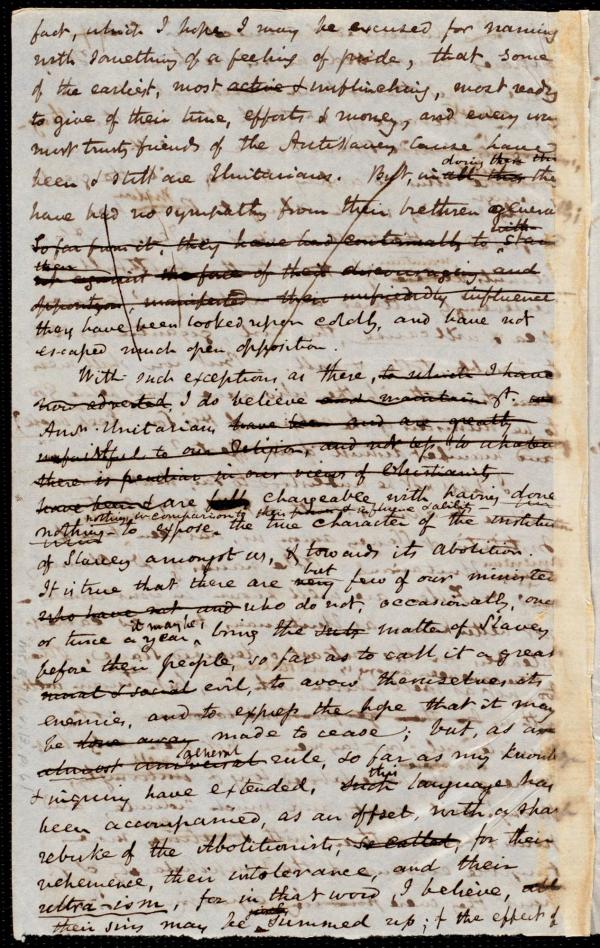 fact, which I hope I may be excused for naming
with something of a feeling of pride, that some
of the earliest, most active & unflinching, most ready
to give of their time, efforts & money, and every way
most trusty friends of the AntiSlavery Cause have
been & still are Unitarians. But, in all this the
during these
have had no sympathy from their brethren genera
So far from it, they have had continually to
with
then
against the face of their discouraging and
opposition, manifested their unfriendly influence
they have been looked upon coldly, and have not
escaped much open opposition.
With such exceptions as these, to which I have
now adverted, I do believe and maintain yt. we
Amn. Unitarians have been and are greatly
unfaithful to our religion, and not less to whatever
there is peculiar in our views of Christianity
have been & are chargeable with having done
nothing in comparison to their influence & ability
nothing to expose the true character of the institu
of Slavery amongst us, & towards its abolition.
It is true that there are very few of our ministe
but
who have not and who do not, occasionally, once
or twice a year, bring the subj matter of Slavery
it may be,
before their people, so far as to call it a great
moral & social evil, to avow themselves its
enemies, and to express the hope that it may
be done away made to cease; but, as an
almost universal rule, so far as my knowl
general
& inquiry have extended, such language has
this
been accompanied, as an offset, with a sha
rebuke of the Abolitionists, so called, for their
vehemence, their intolerance, and their
ultra-ism, for in that word, I believe, all
their sins may be summed up; & the effect of